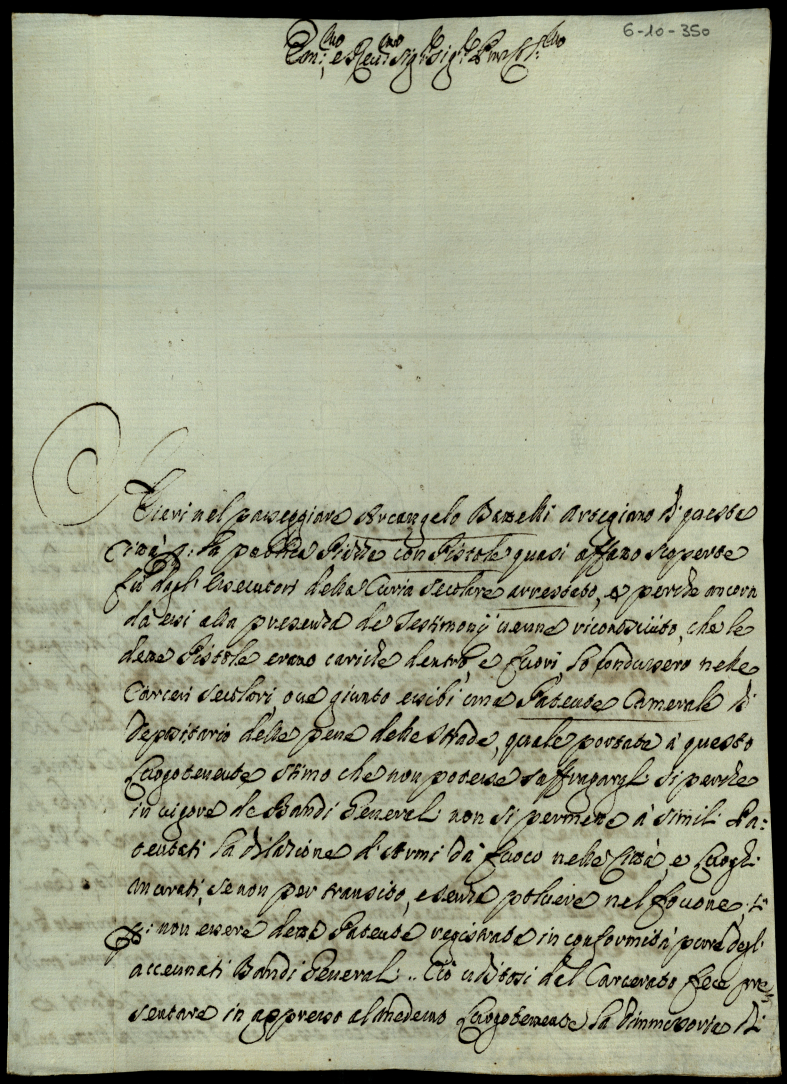 6-10-350
Em:mo e Re:mo Sig:r Sig:r P:ne Col:mo
Hieri nel passeggiare Arcangelo Bazzelli Artegiano di queste
Città p: la publica Piazza con Pistole quasi affatto scoperte
fù dagl'Esecutori della Curia Secolare arrestato, e perche ancora
da essi alla presenza de Testimonij venne riconosciuto, che le
dette Pistole erano cariche dentro, e fuori, lo condussero nelle
Carceri Secolari, ove giunto essibì una Patente Camerale di
Depositario delle pene delle strade, quale portata à questo
Luogotenente stimò che non potesse suffragargli sì perche
in vigore de Bandi Generali non si permette à simili Pa:
tentati la dilazione d'Armi dà fuoco nelle Città, e Luoghi
murati, se non per transito, e senza polvere nel focone, sì
p: non essere detta Patente registrata in conformità pure degl'
accennati Bandi Generali.. Ciò uditosi dal Carcerato fece pre=
sentare in appresso al medemo Luogotenente la Inimissoria di